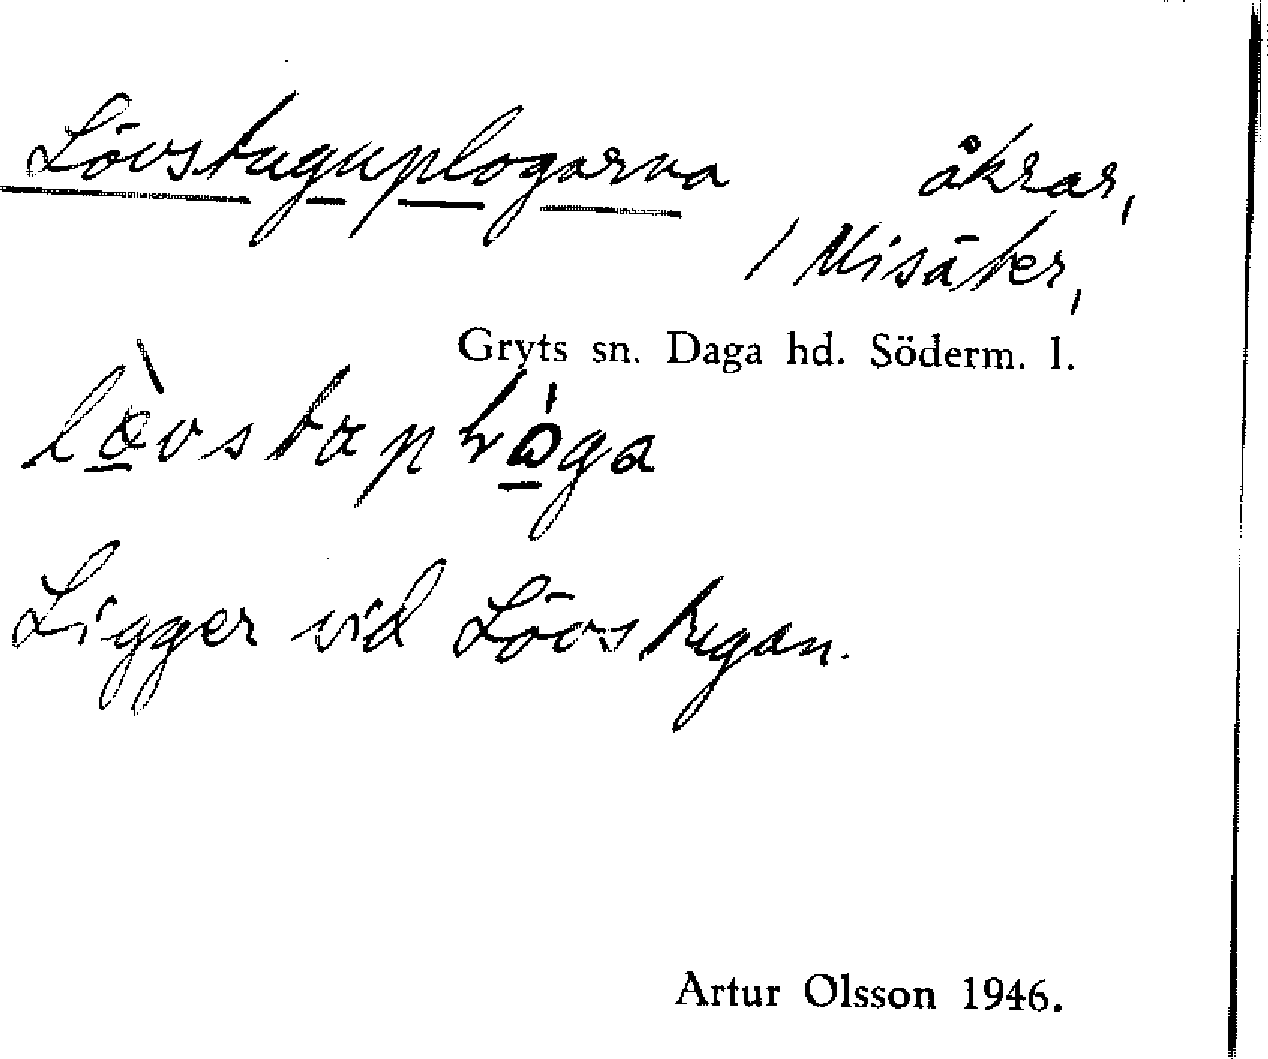 Lövstuguplogarna åkrar,
/ Misäter,
Gryts sn. Daga hd. Söderm. l.
Ligger vid Lövstugan.
Artur Olsson 1946.